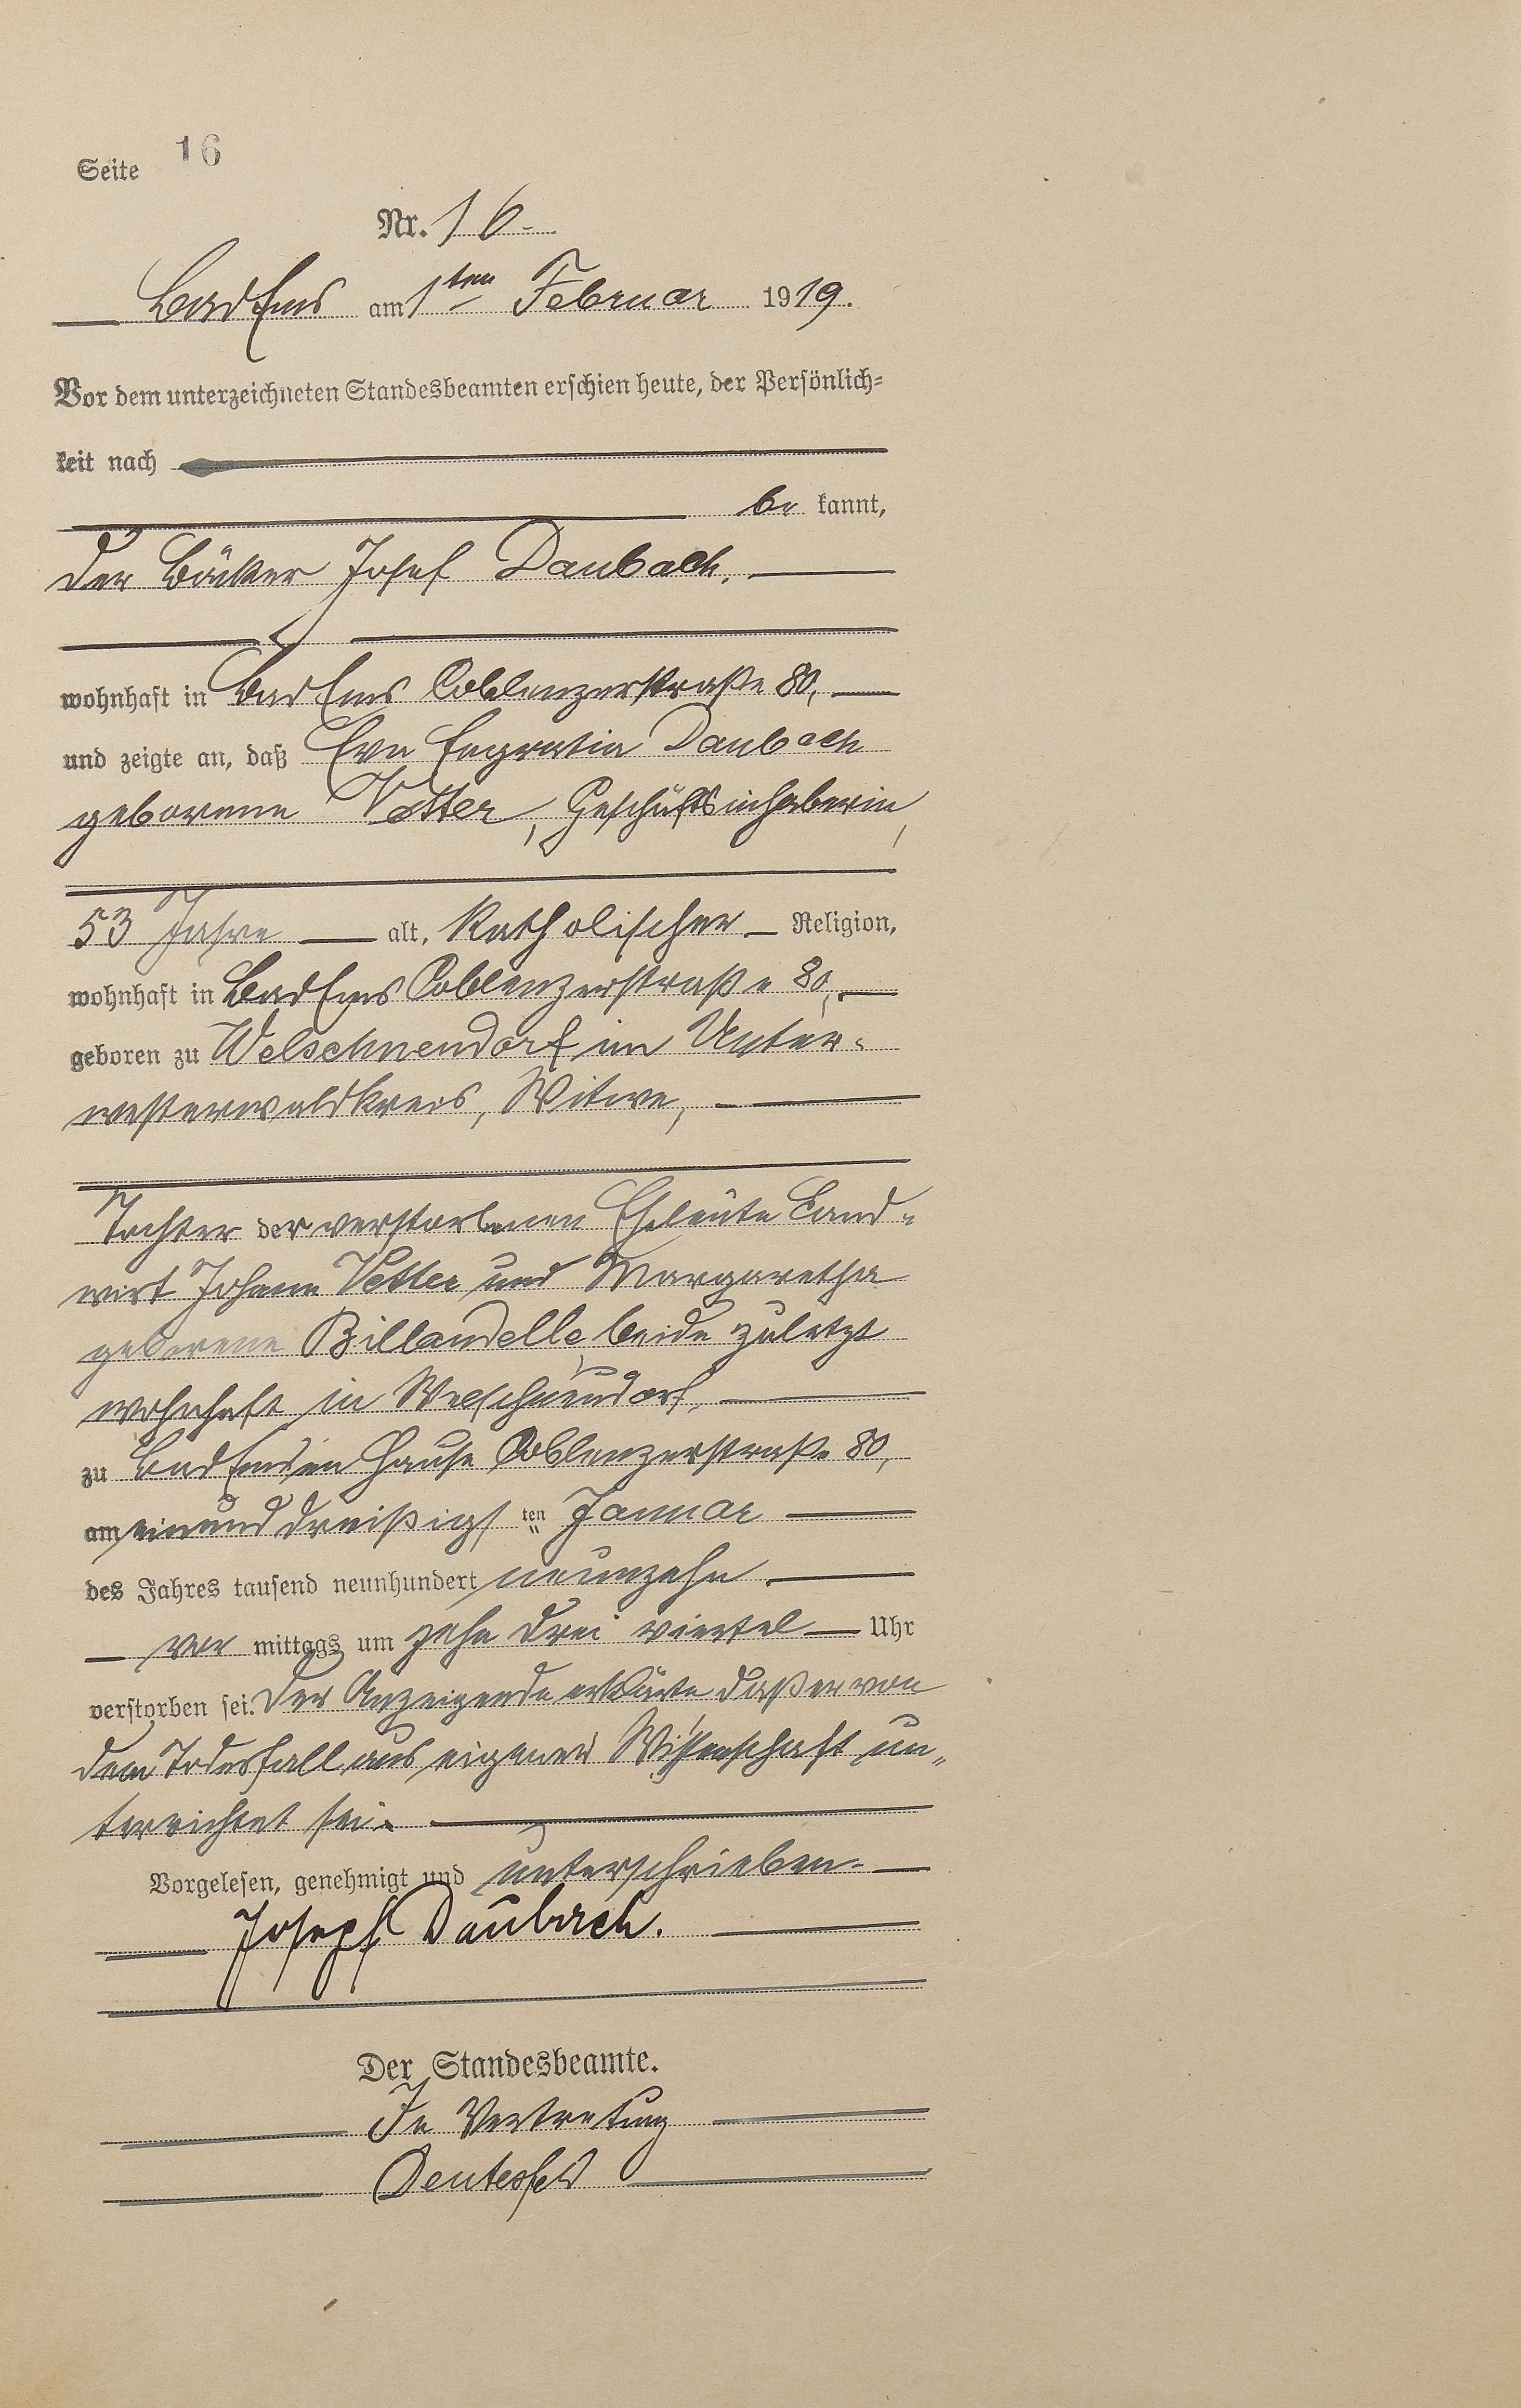 Seite 16
Nr. 16.
Bad Ems am 1ten Februar 1919.
Vor dem unterzeichneten Standesbeamten erschien heute, der Persönlich=
keit nach
be kannt,
der Bäcker Josef Daubach,
wohnhaft in Bad Ems Coblenzerstraße 80,
und zeigte an, daß Eva Engratia Daubach
geborene Vetter, Geschäftsinhaberin,
53 Jahre alt, katholischer Religion,
wohnhaft in Bad Ems Coblenzerstraße 80,
geboren zu Welschneudorf im Unter-
westerwaldkreis, Witwe,
Tochter der verstorbenen Eheleute Land-
wirt Johann Vetter und Margaretha
geborene Billaudelle, beide zuletzt
wohnhaft in Welschneudorf,
zu Bad Ems im Hause Coblenzerstraße 80,
am einund dreißigsten Januar
des Jahres tausend neunhundert neunzehn
vor mittags um zehn drei viertel Uhr
verstorben sei. Der Anzeigende erklärte daß er von
dem Todesfall aus eigener Wissenschaft un-
terrichtet sei.
Vorgelesen, genehmigt und unterschrieben.
Joseph Daubach.
Der Standesbeamte.
In Vertretung